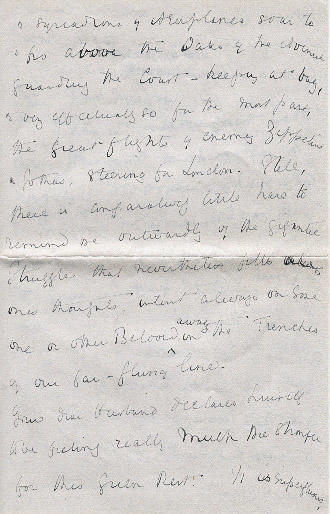 & squadrons of Aeroplanes soar to
& fro above the Oaks of the Avenue
guarding the Coast – keeping at bay,
& very effectually so for the most part,
the great flights of enemy Zeppelins
& Gothas, steering for London. Still,
there is comparatively little here to
remind one outwardly of the gigantic
struggle that nevertheless fills
ones thoughts, intent always on some
one or other Beloved away in the Trenches
of our far-flung line.
Your dear Husband declares himself
to be feeling really much the stronger
for this Green Rest. It is superfluous,